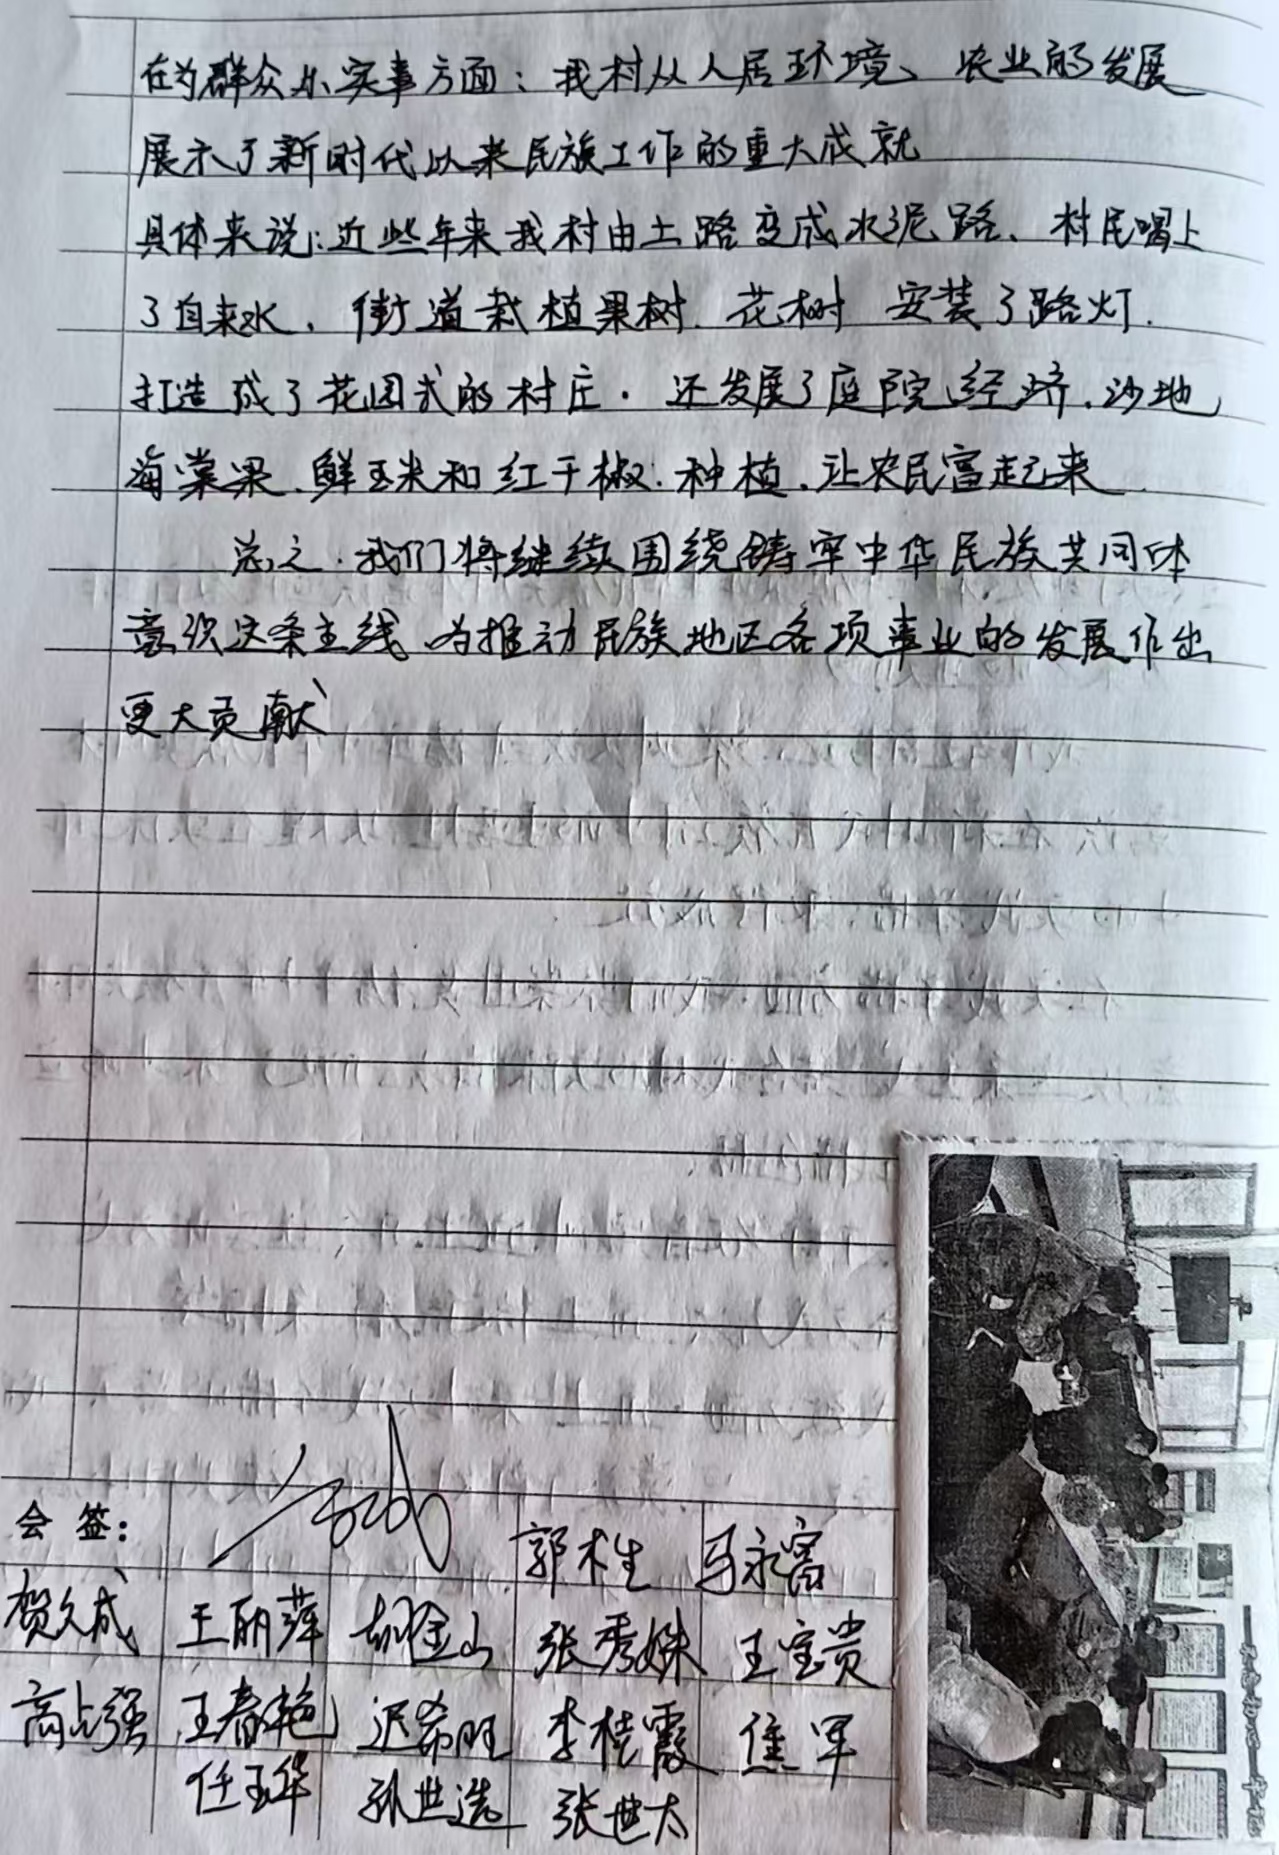 在为群众办实事方面：我村从人居环境、农业的发展
展示了新时代以来民族工作的重大成就
具体来说：近些年来我村由土路变成水泥路、村民喝上
了自来水、街道栽植果树、花树 安装了路灯.
打造成了花园式的村庄. 还发展了庭院经济、沙地
海棠果、鲜玉米和红干椒.种植、让农民富起来
总之.我们将继续围绕铸牢中华民族共同体
意识这条主线 为推动民族地区各项事业的发展作出
更大贡献
会 签：
郭柱 马永富
贺久成 王丽萍 胡金山 张秀姝 王宝贵
高占强 王春艳 迟希旺 李桂霞 焦军
任玉华 孙世选 张世太